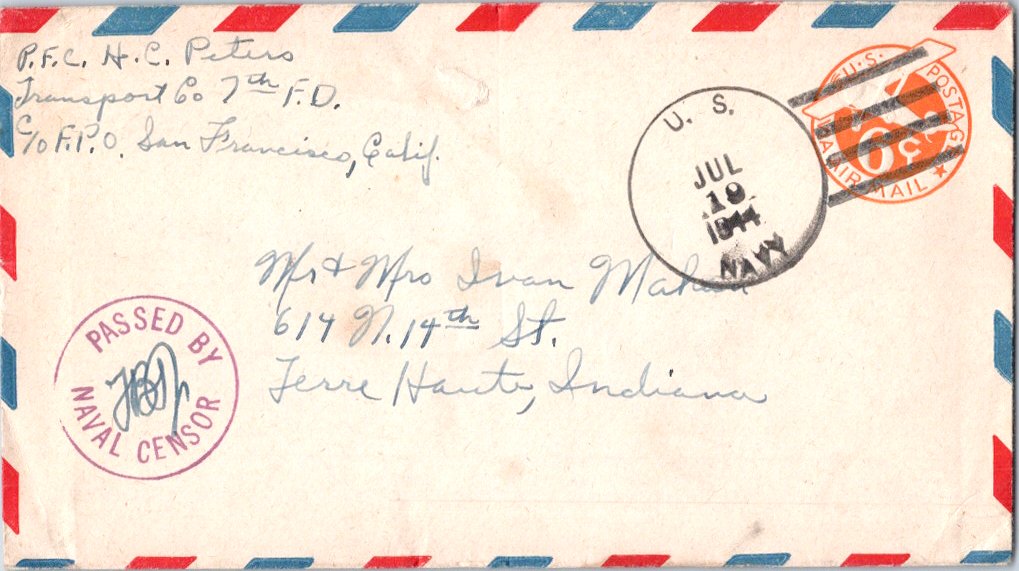 P.F.C. H.C. Peters
Transport Co 7th F.D.
C/o F.P.O. San Francisco, Calif.
U.S. POSTAGE
6¢
VIA AIR MAIL
U. S.
JUL
19
1944
NAVY
Mr & Mrs Ivan
614 N. 14th St.
Terre Haute, Indiana
PASSED BY
NAVAL CENSOR